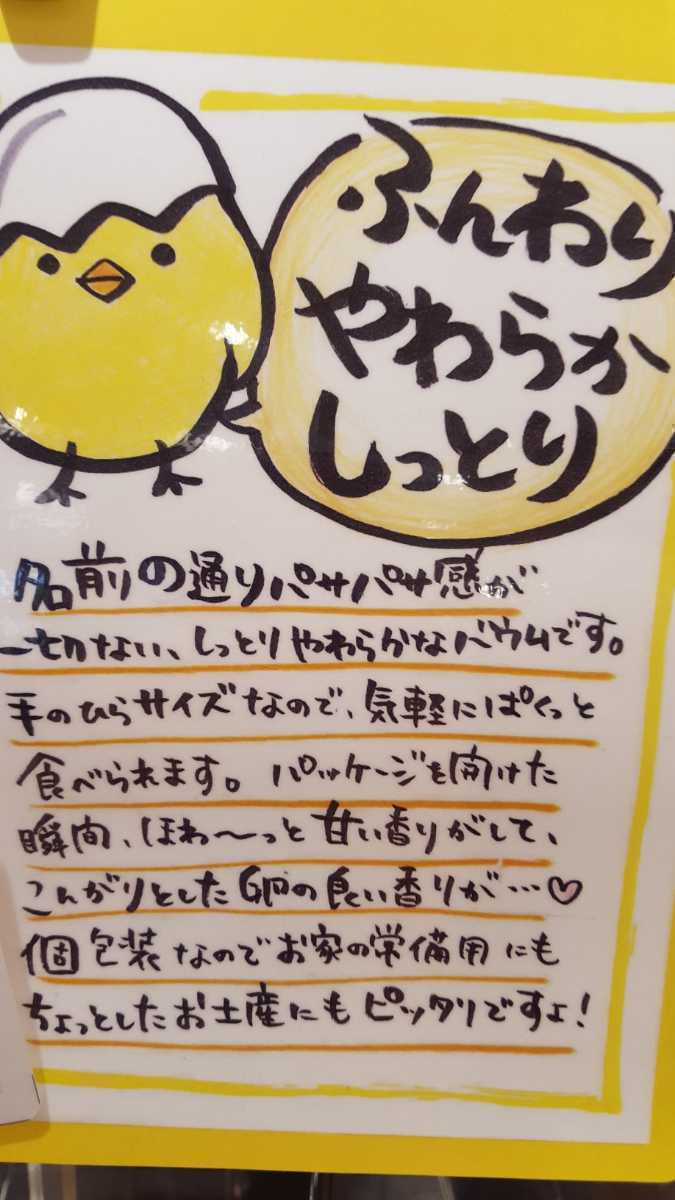 ふんわり
やわらか
しっとり
名前の通りパサパサ感が
一切ない、しっとりやわらかなバウムです。
手のひらサイズなので、気軽にぱくっと
食べられます。パッケージを開けた
瞬間、ほわ〜っと甘い香りがして、
こんがりとした卵の良い香りが…♡
個包装なのでお家の常備用にも
ちょっとしたお土産にもピッタリですよ!